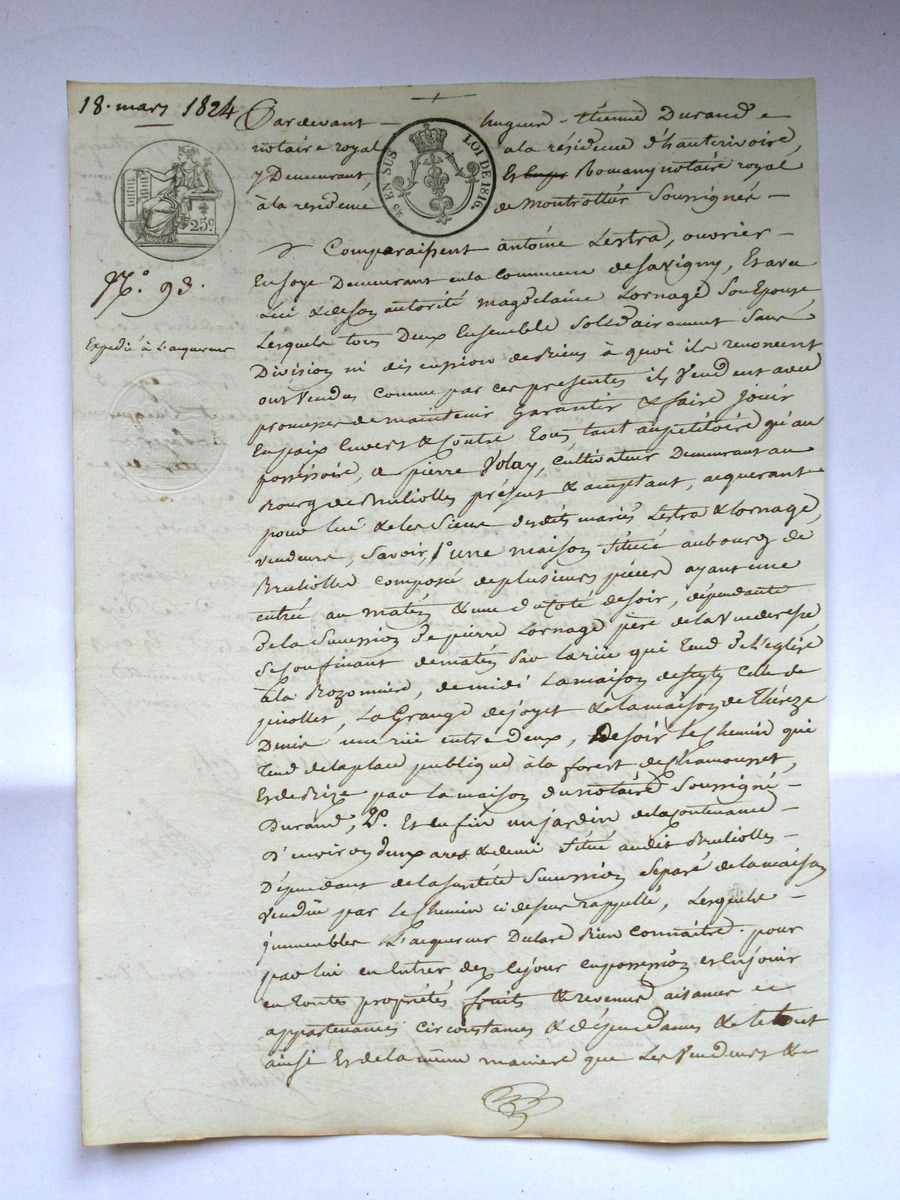 18. mars 1824
Pardevant hugues-étienne Durand
notaire royal à la résidence d'hauterivoire,
y Demeurant, Et Romany notaire royal
à la residence de Montrottier Soussignés
25c.
45 EN SUS LOI DE 1816.
N.° 93.
Expedié à L'acquereur
Comparaissent antoine Lestra, ouvrier
En soye Demeurant en la Commune de Savigny, Et avec
Lui & de son autorité magdelaine Lornage Son Epouse
Lesquels tous Deux Ensemble Solidairement Sans
Division ni discussion de Biens à quoi ils renoncent
ont Vendus Comme par ces presentes ils Vendent avec
promesse de maintenir Garantir & faire jouir
En paix Envers & Contre Tous, tant au petitoire qu'au
possessoire, a pierre Volay, Cultivateur Demeurant au
Bourg de Brulliolles présent & acceptant, acquerant
pour lui & les Siens desdits mariés Lestra & Lornage,
vendeurs, Savoir, 1° une maison Située au bourg de
Brulliolles Composée de plusieurs pièces ayant une
entrée au matin & une du Coté de soir, dépendante
de la Succession de pierre Lornage père de la Venderesse
Se Confinant de matin par la rüe qui Tend de L'eglise
à la Rozonniere, de midi La maison de Celle de
La Grange de joyet & de la maison de Thérèze
Denis une rüe entre deux, De Soir Le Chemin qui
Tend de la place publique à la forest de Chamousset,
Et de Bize par la maison du notaire Soussigné
Durand, 2°. Et en fin un jardin de la Contenance
D'environ deux ares & demi Situé audit Brulliolles
Dépendant de la susditte Succession Séparé de la maison
Vendüe par le Chemin ci dessus rappellé, Lesquels
immeubles L'acquereur Declare Bien Connaître. pour
par lui en Entrer dez ce jour en possession et En jouir
en toutes propriétés fruits & revenus aisances et
appartenances Circonstances & dépendances & le tout
ainsi Et de la même maniere que Les Vendeurs &